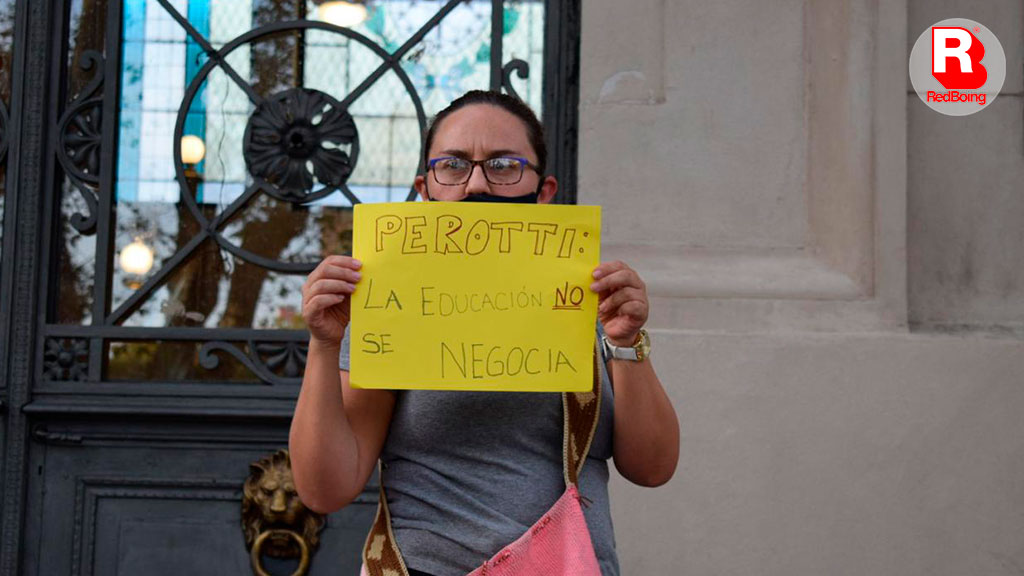 R
RedBoing
PEROTTI:
LA EDUCACIÓN NO
SE NEGOCIA